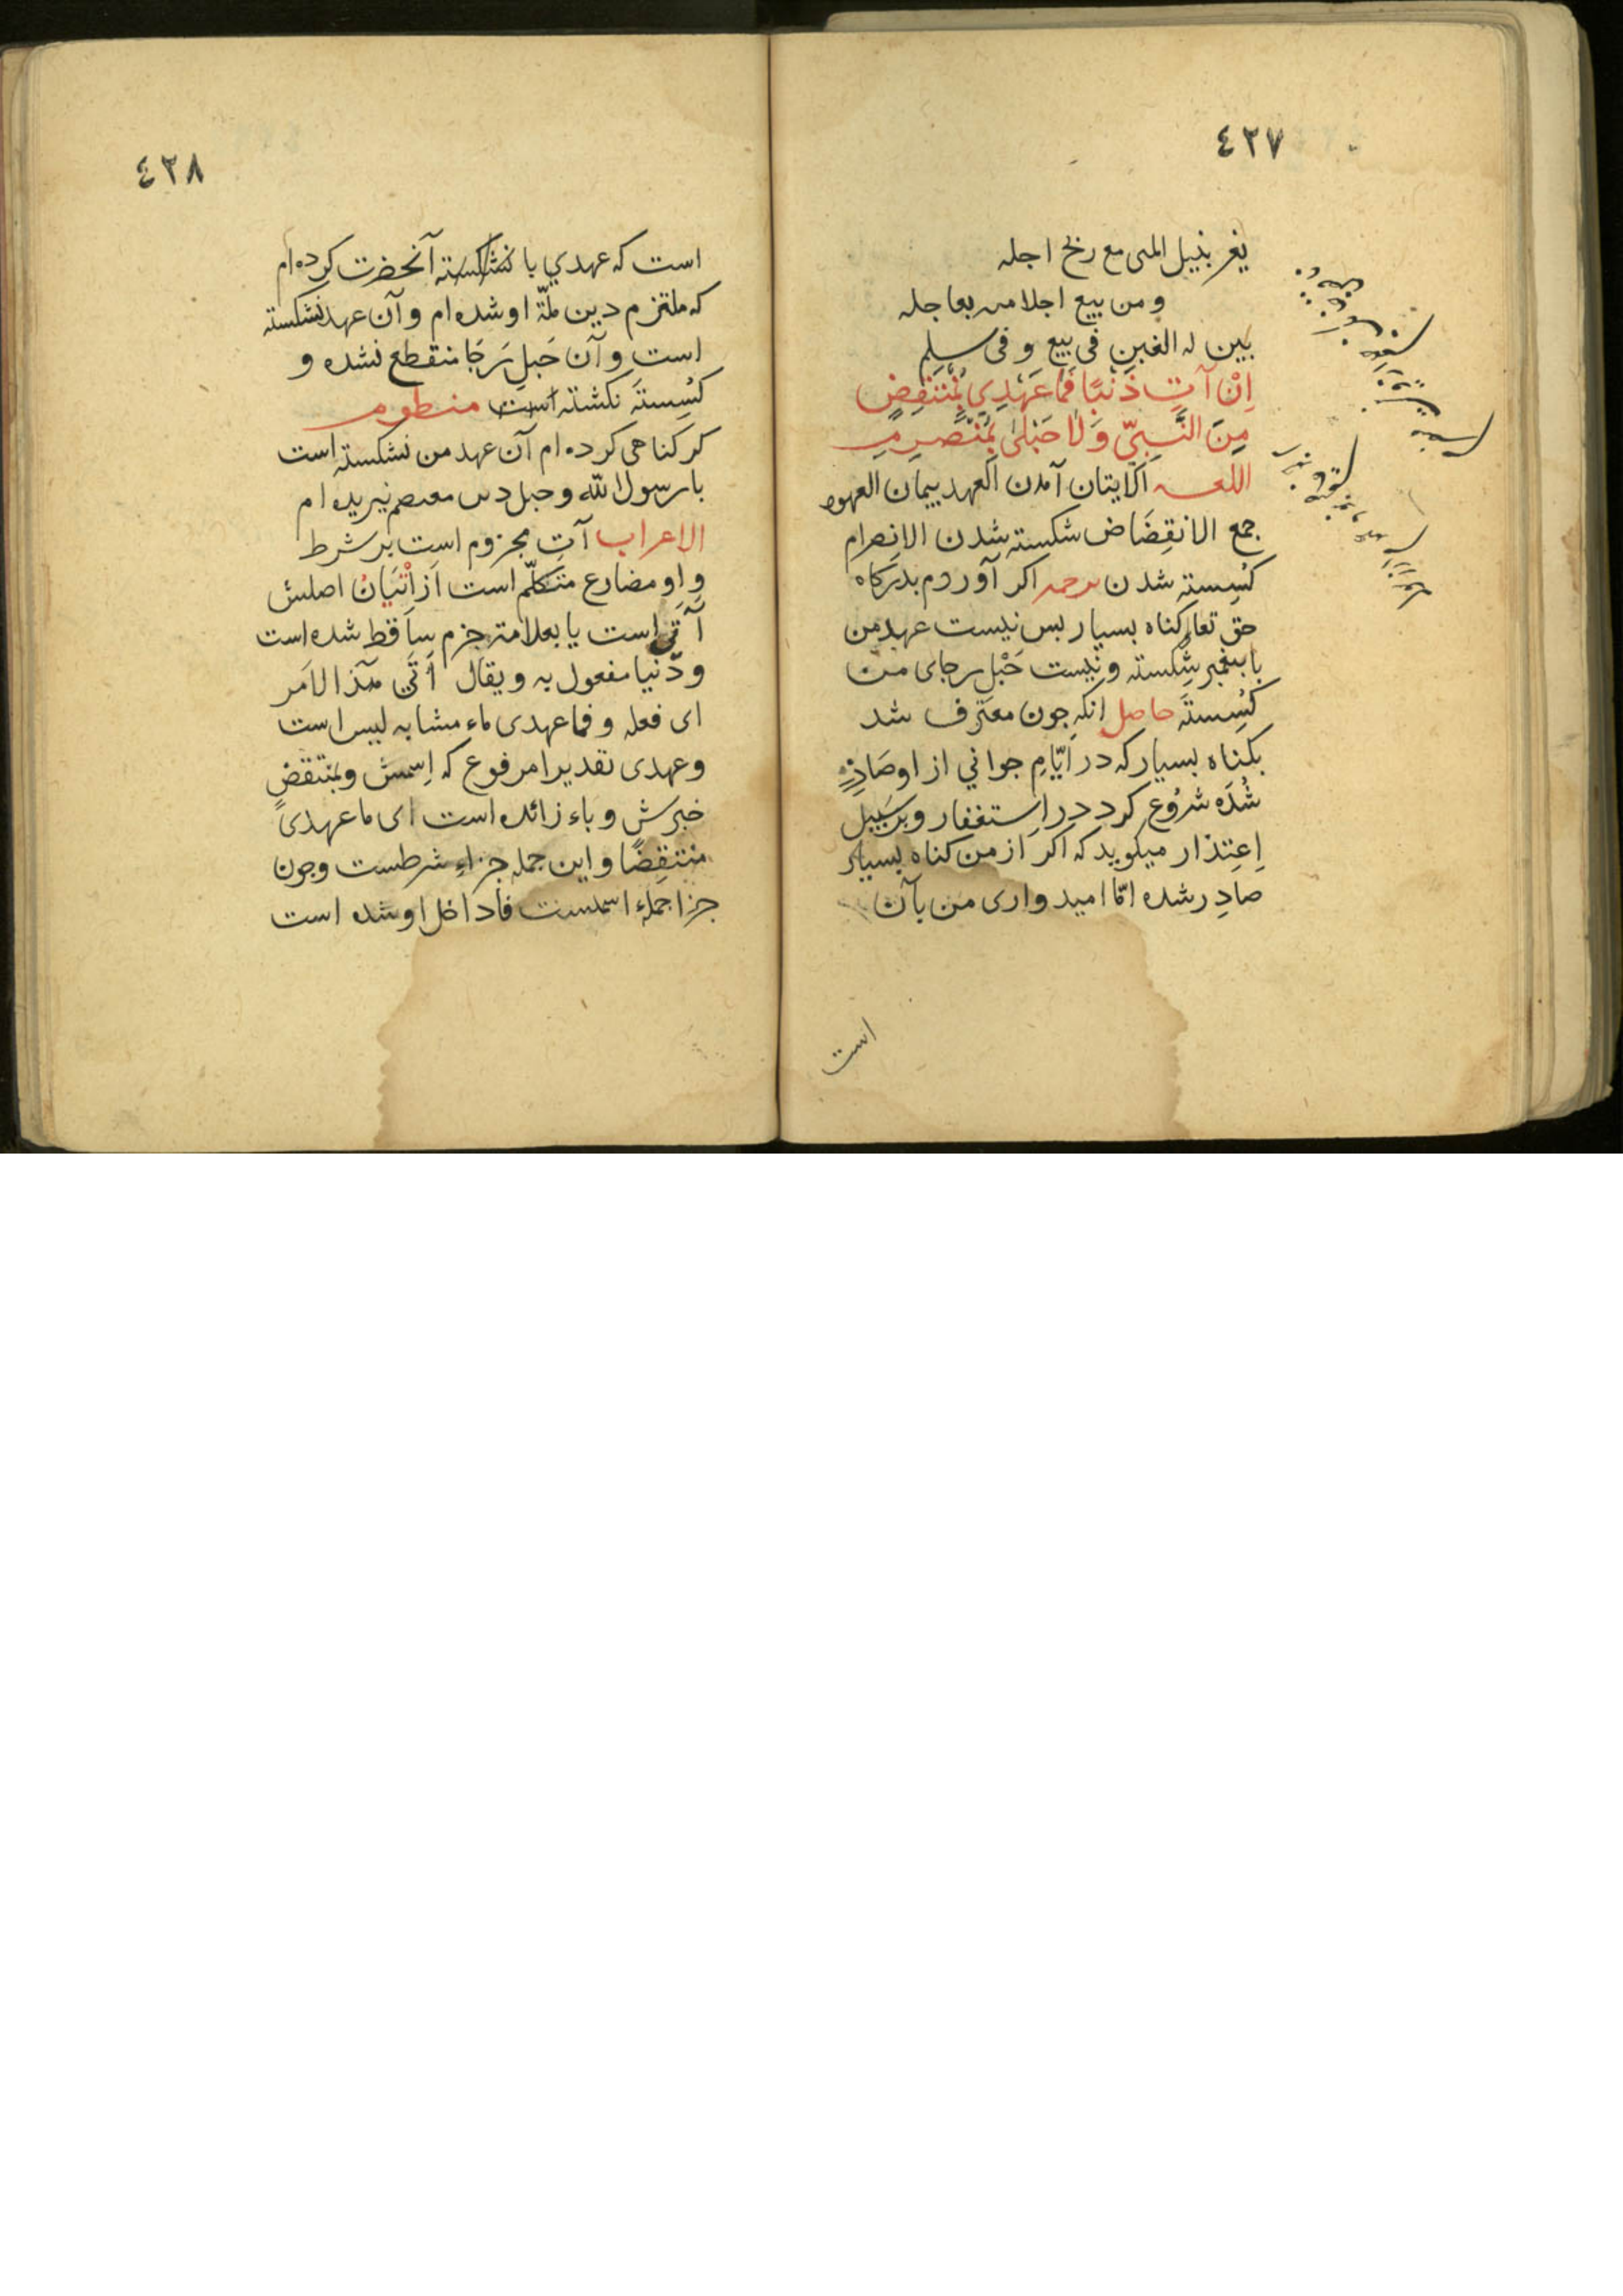 ٤٢٧
يغر بنيل المنى مع ربح اجله
ومن يبع اجلا منه بعاجله
يبين له الغبن فى بيع و فى سلم
اِنْ آتِ ذَنْبًا فَمَا عَهْدِي بِمُنْتَقِضٍ
مِنَ النَّبِيّ وَلَا حَبْلِىْ بِمُنْصَرِمِ
اللغه الايتان آمدن العهد پيمان العهود
جمع الانقِضَاض شكسته شدن الانصرام
كُسِسته شدن ترجمه اكر آوردم بدركاه
حق تعا كناه بسيار بس نيست عهد من
با پيغمبر شكسته و نيست حَبْل رجاى من
كُسِستَه حاصل انكه جون معترف شد
بكناه بسيار كه در ايّامِ جواني از او صَادِر
شُدَه شرُوع كرد در اِستغفار و بر سَبيل
اِعتِذار ميكويد كه اكر از من كناه بسيار
صادِر شده امّا اميدوارى من بآن
است
٤٢٨
است كه عهدي با نشكسته آنحضرت كرده ام
كه ملتزم دين ملّة او شده ام و آن عهد نشكسته
است و آن حَبلِ رَجَا منقطع نشده و
كُسِستَه نكشته است منظوم
كر كناهى كرده ام آن عهد من نشكسته است
با رسول الله و حبل دين معتصم نبريده ام
الاعراب آتِ مجزوم است بر شرط
و او مضارع متكلّم است از اتْيَانُ اصلش
آتِى است يا بعلامتِ جزم ساقط شده است
و ذنبا مفعول به و يقال اَتَى هذا الاَمر
اى فعله و فما عهدى ماء مشابه ليس است
و عهدى تقديرا مرفوع كه اِسمش و بمنتقضٍ
خبرش و باء زائده است اى ما عهدى
منتقِضًا و اين جمله جزاءِ شرطست و جون
جزا جملهء اسميست فا داخل او شده است